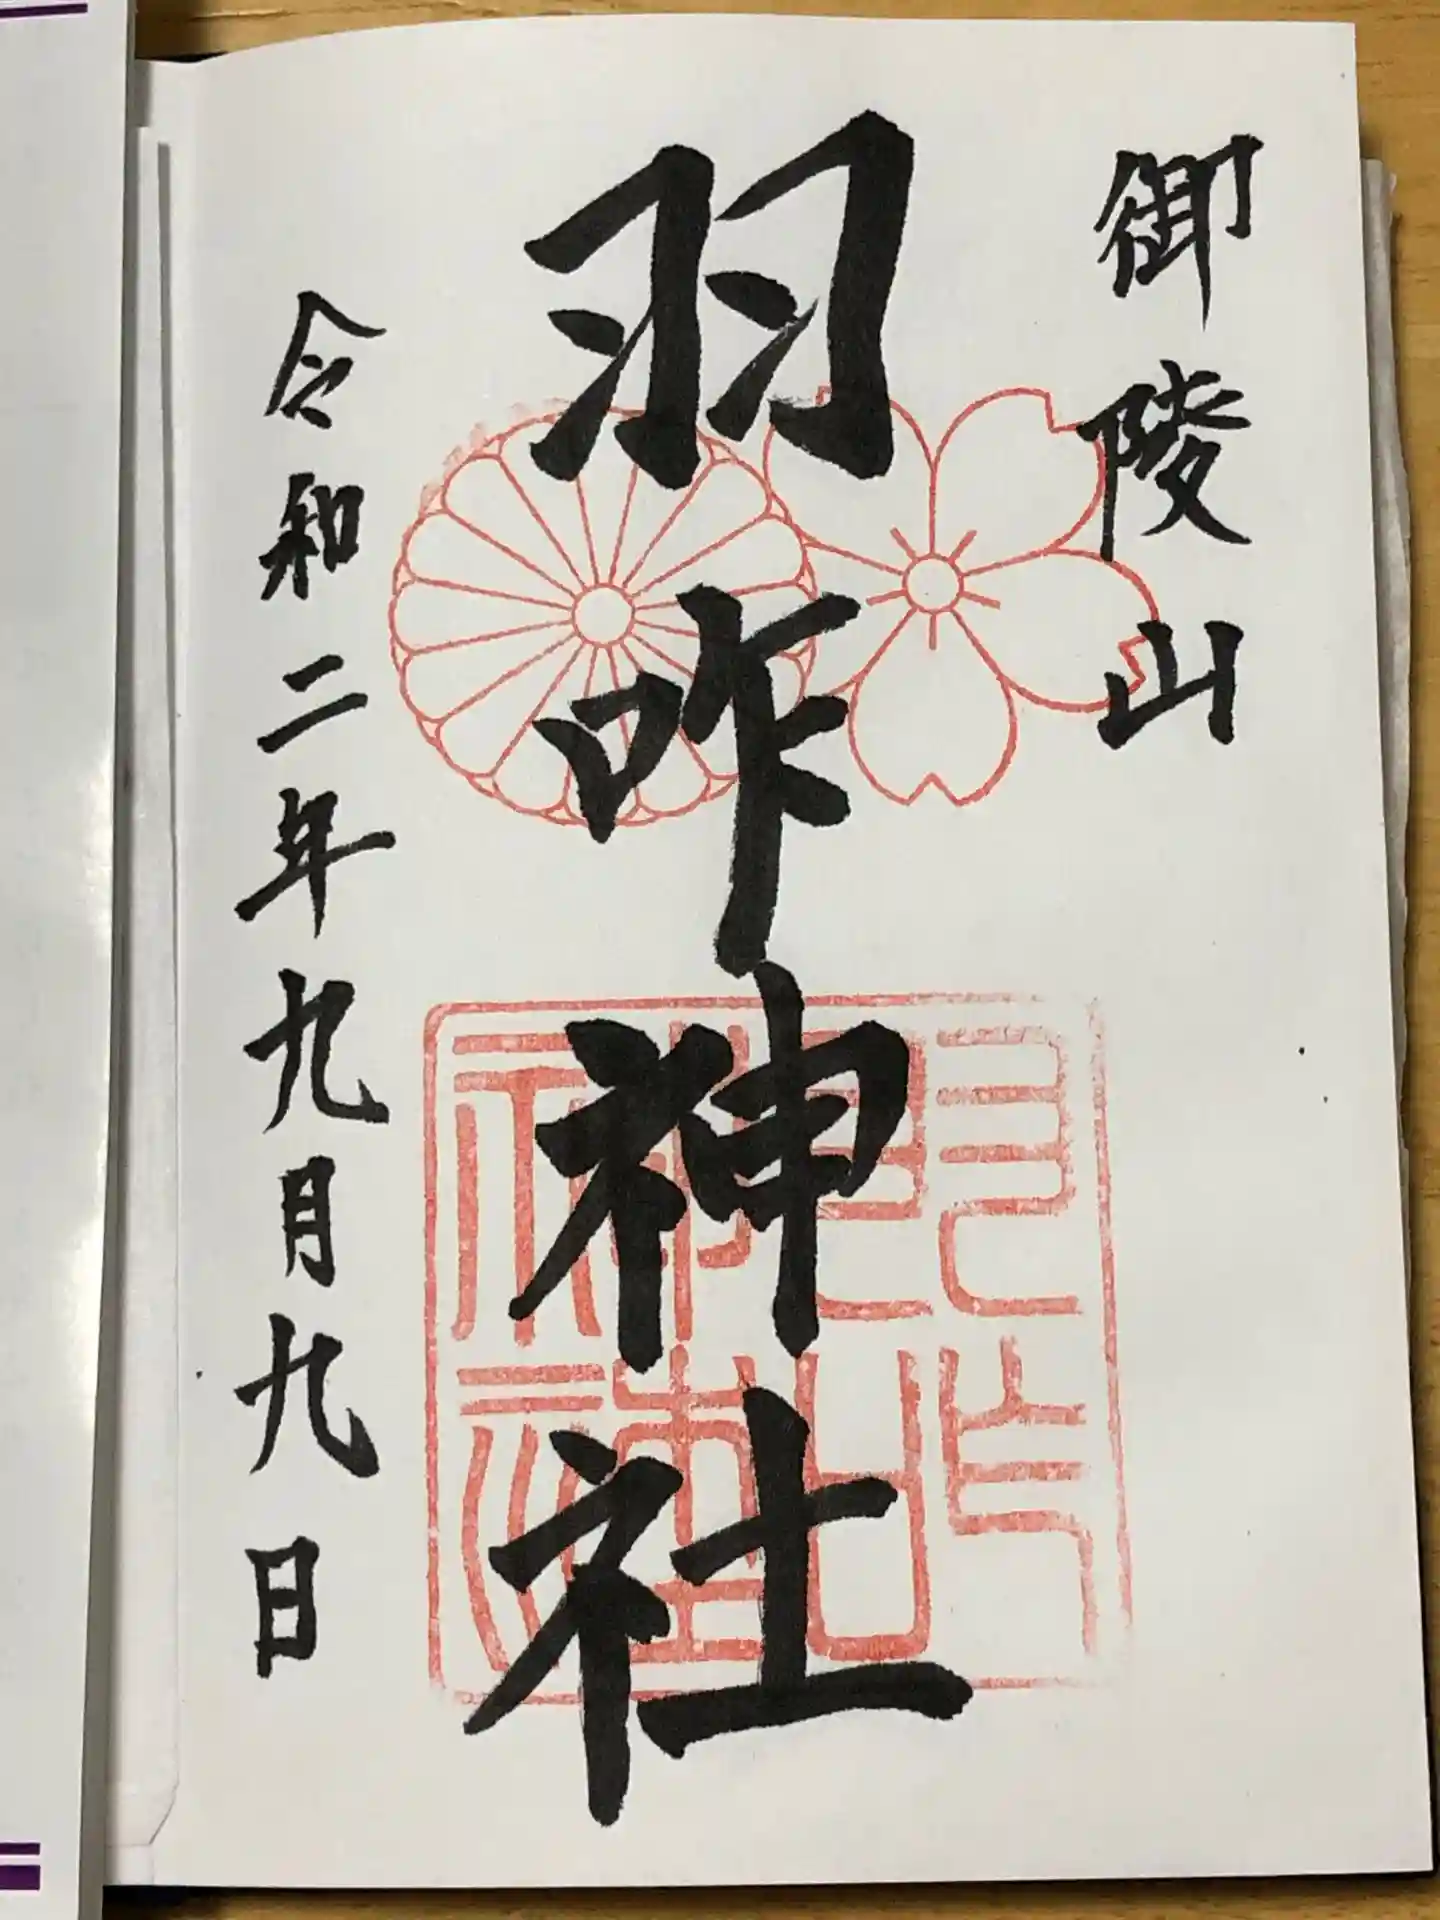 御陵山
羽咋神社
令和二年九月九日